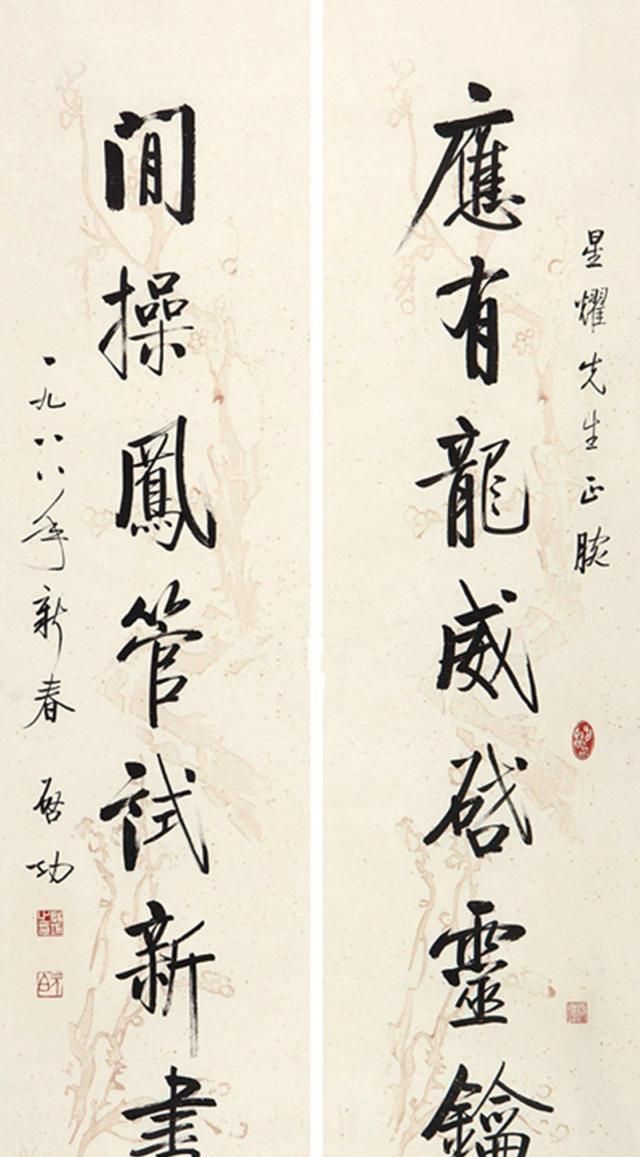 星耀先生正腕
應有龍威啓靈鑰
閒操鳳管試新書
一九八八年新春 啓功